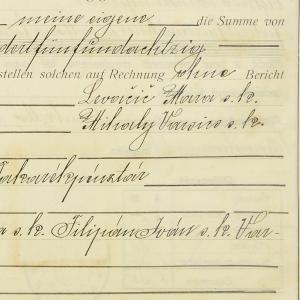 meine eigene die Summe von
dertfünfundachtzig
stellen solchen auf Rechnung ohne Bericht
Levačić Mara s. k.
Mihaly s. k.
Takarékpénztár
a s. k. Filipán Iván s. k. Var-